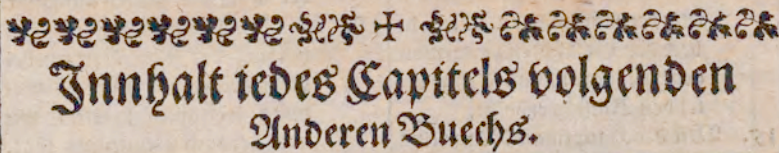 Innhalt iedes Capitels volgenden
Anderen Buechs.